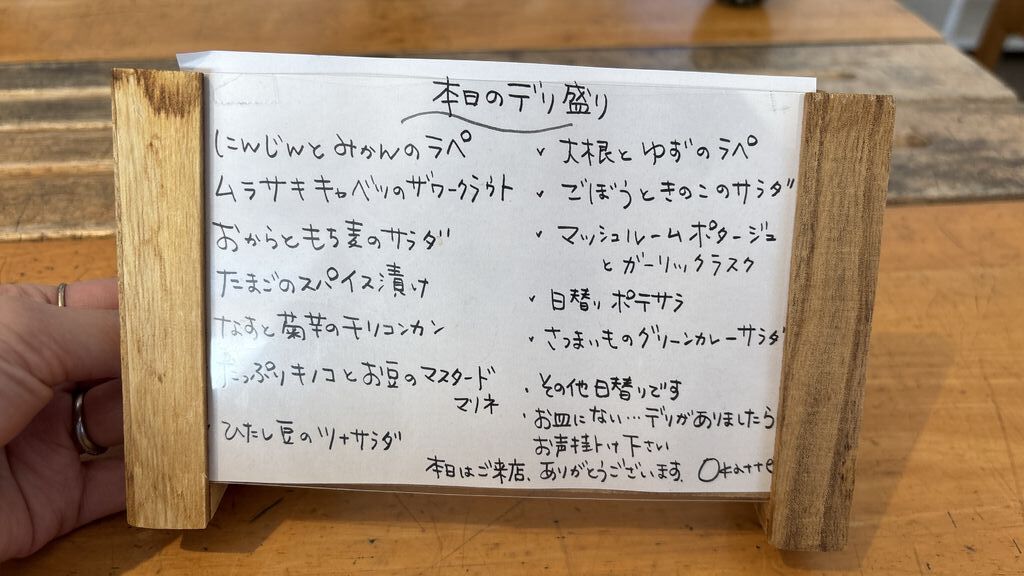 本日のデリ盛り
にんじんとみかんのラペ
ムラサキキャベツのザワークラウト
おからともち麦のサラダ
たまごのスパイス漬け
なすと菊芋のチリコンカン
たっぷりキノコとお豆のマスタード
マリネ
ひたし豆のツナサラダ
✓ 大根とゆずのラペ
✓ ごぼうときのこのサラダ
✓ マッシュルームポタージュ
とガーリックラスク
・日替りポテサラ
・さつまいものグリーンカレーサラダ
・その他日替りです
・お皿にない…デリがありましたら
お声掛け下さい
本日はご来店、ありがとうございます。Okatte